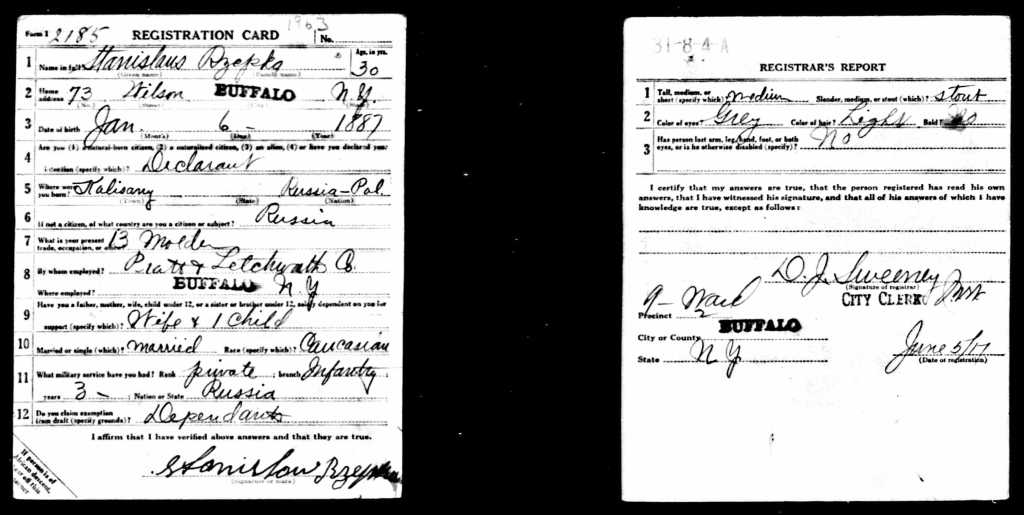 1963
Form 1 2185 REGISTRATION CARD No.
1 Name in full Stanislaus Rzepka Age, in yrs. 30
(Given name) (Family name)
2 Home address 73 Wilson BUFFALO N.Y.
(No.) (Street) (City) (State)
3 Date of birth Jan. 6 - 1887
(Month) (Day) (Year)
Are you (1) a natural-born citizen, (2) a naturalized citizen, (3) an alien, (4) or have you declared your
4 intention (specify which)? Declarant
5 Where were you born? Kalisany Russia-Pol.
(Town) (State) (Nation)
6 If not a citizen, of what country are you a citizen or subject? Russia
7 What is your present trade, occupation, or office? 13 Molder
8 By whom employed? Pratt & Letchworth Co.
Where employed? BUFFALO N Y
Have you a father, mother, wife, child under 12, or a sister or brother under 12, solely dependent on you for
9 support (specify which)? Wife & 1 Child
10 Married or single (which)? Married Race (specify which)? Caucasian
11 What military service have you had? Rank private ; branch Infantry ;
years 3 - ; Nation or State Russia
12 Do you claim exemption from draft (specify grounds)? Dependants
I affirm that I have verified above answers and that they are true.
Stanislow Rzepka
(Signature or mark)
If person is of African descent, tear off this corner
31-8-4-A
REGISTRAR'S REPORT
1 Tall, medium, or short (specify which)? Medium Slender, medium, or stout (which)? stout
2 Color of eyes? Grey Color of hair? Light Bald? No
3 Has person lost arm, leg, hand, foot, or both eyes, or is he otherwise disabled (specify)? No
I certify that my answers are true, that the person registered has read his own
answers, that I have witnessed his signature, and that all of his answers of which I have
knowledge are true, except as follows:
D. J. Sweeney
(Signature of registrar)
CITY CLERK
Precinct 9 - Ward
2
City or County BUFFALO
State N Y.
June 5/17
(Date of registration)